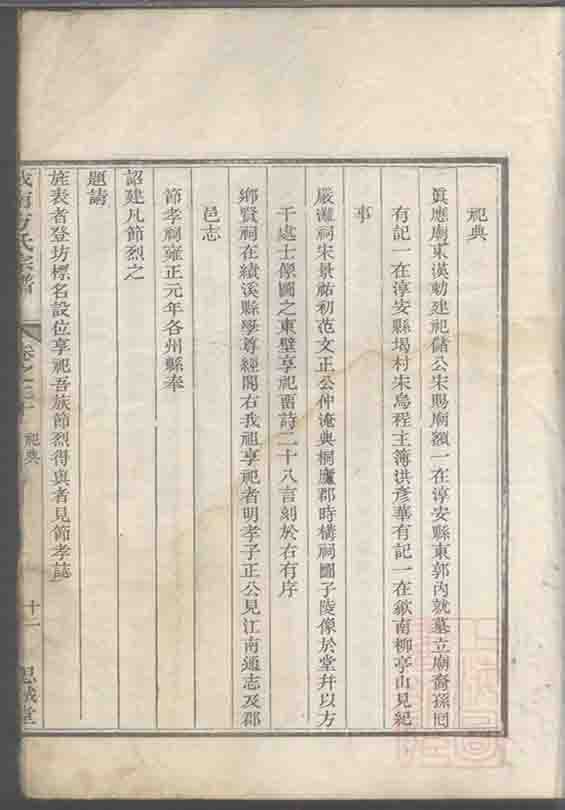 祀典
眞應廟東漢勅建祀儲公宋賜廟額一在淳安縣東郭內就墓立廟裔孫誾
有記一在淳安縣堨村宋烏程主簿洪彥華有記一在歙南柳亭山見紀
事
嚴灘祠宋景祐初范文正公仲淹典桐廬郡時構祠圖子陵像於堂幷以方
干處士像圖之東壁享祀畱詩二十八言刻於右有序
鄉賢祠在績溪縣學尊經閣右我祖享祀者明孝子正公見江南通志及郡
邑志
節孝祠雍正元年各州縣奉
詔建凡節烈之
題請
旌表者登坊標名設位享祀吾族節烈得與者見節孝誌
方氏宗譜
祀典
十二
思誠堂